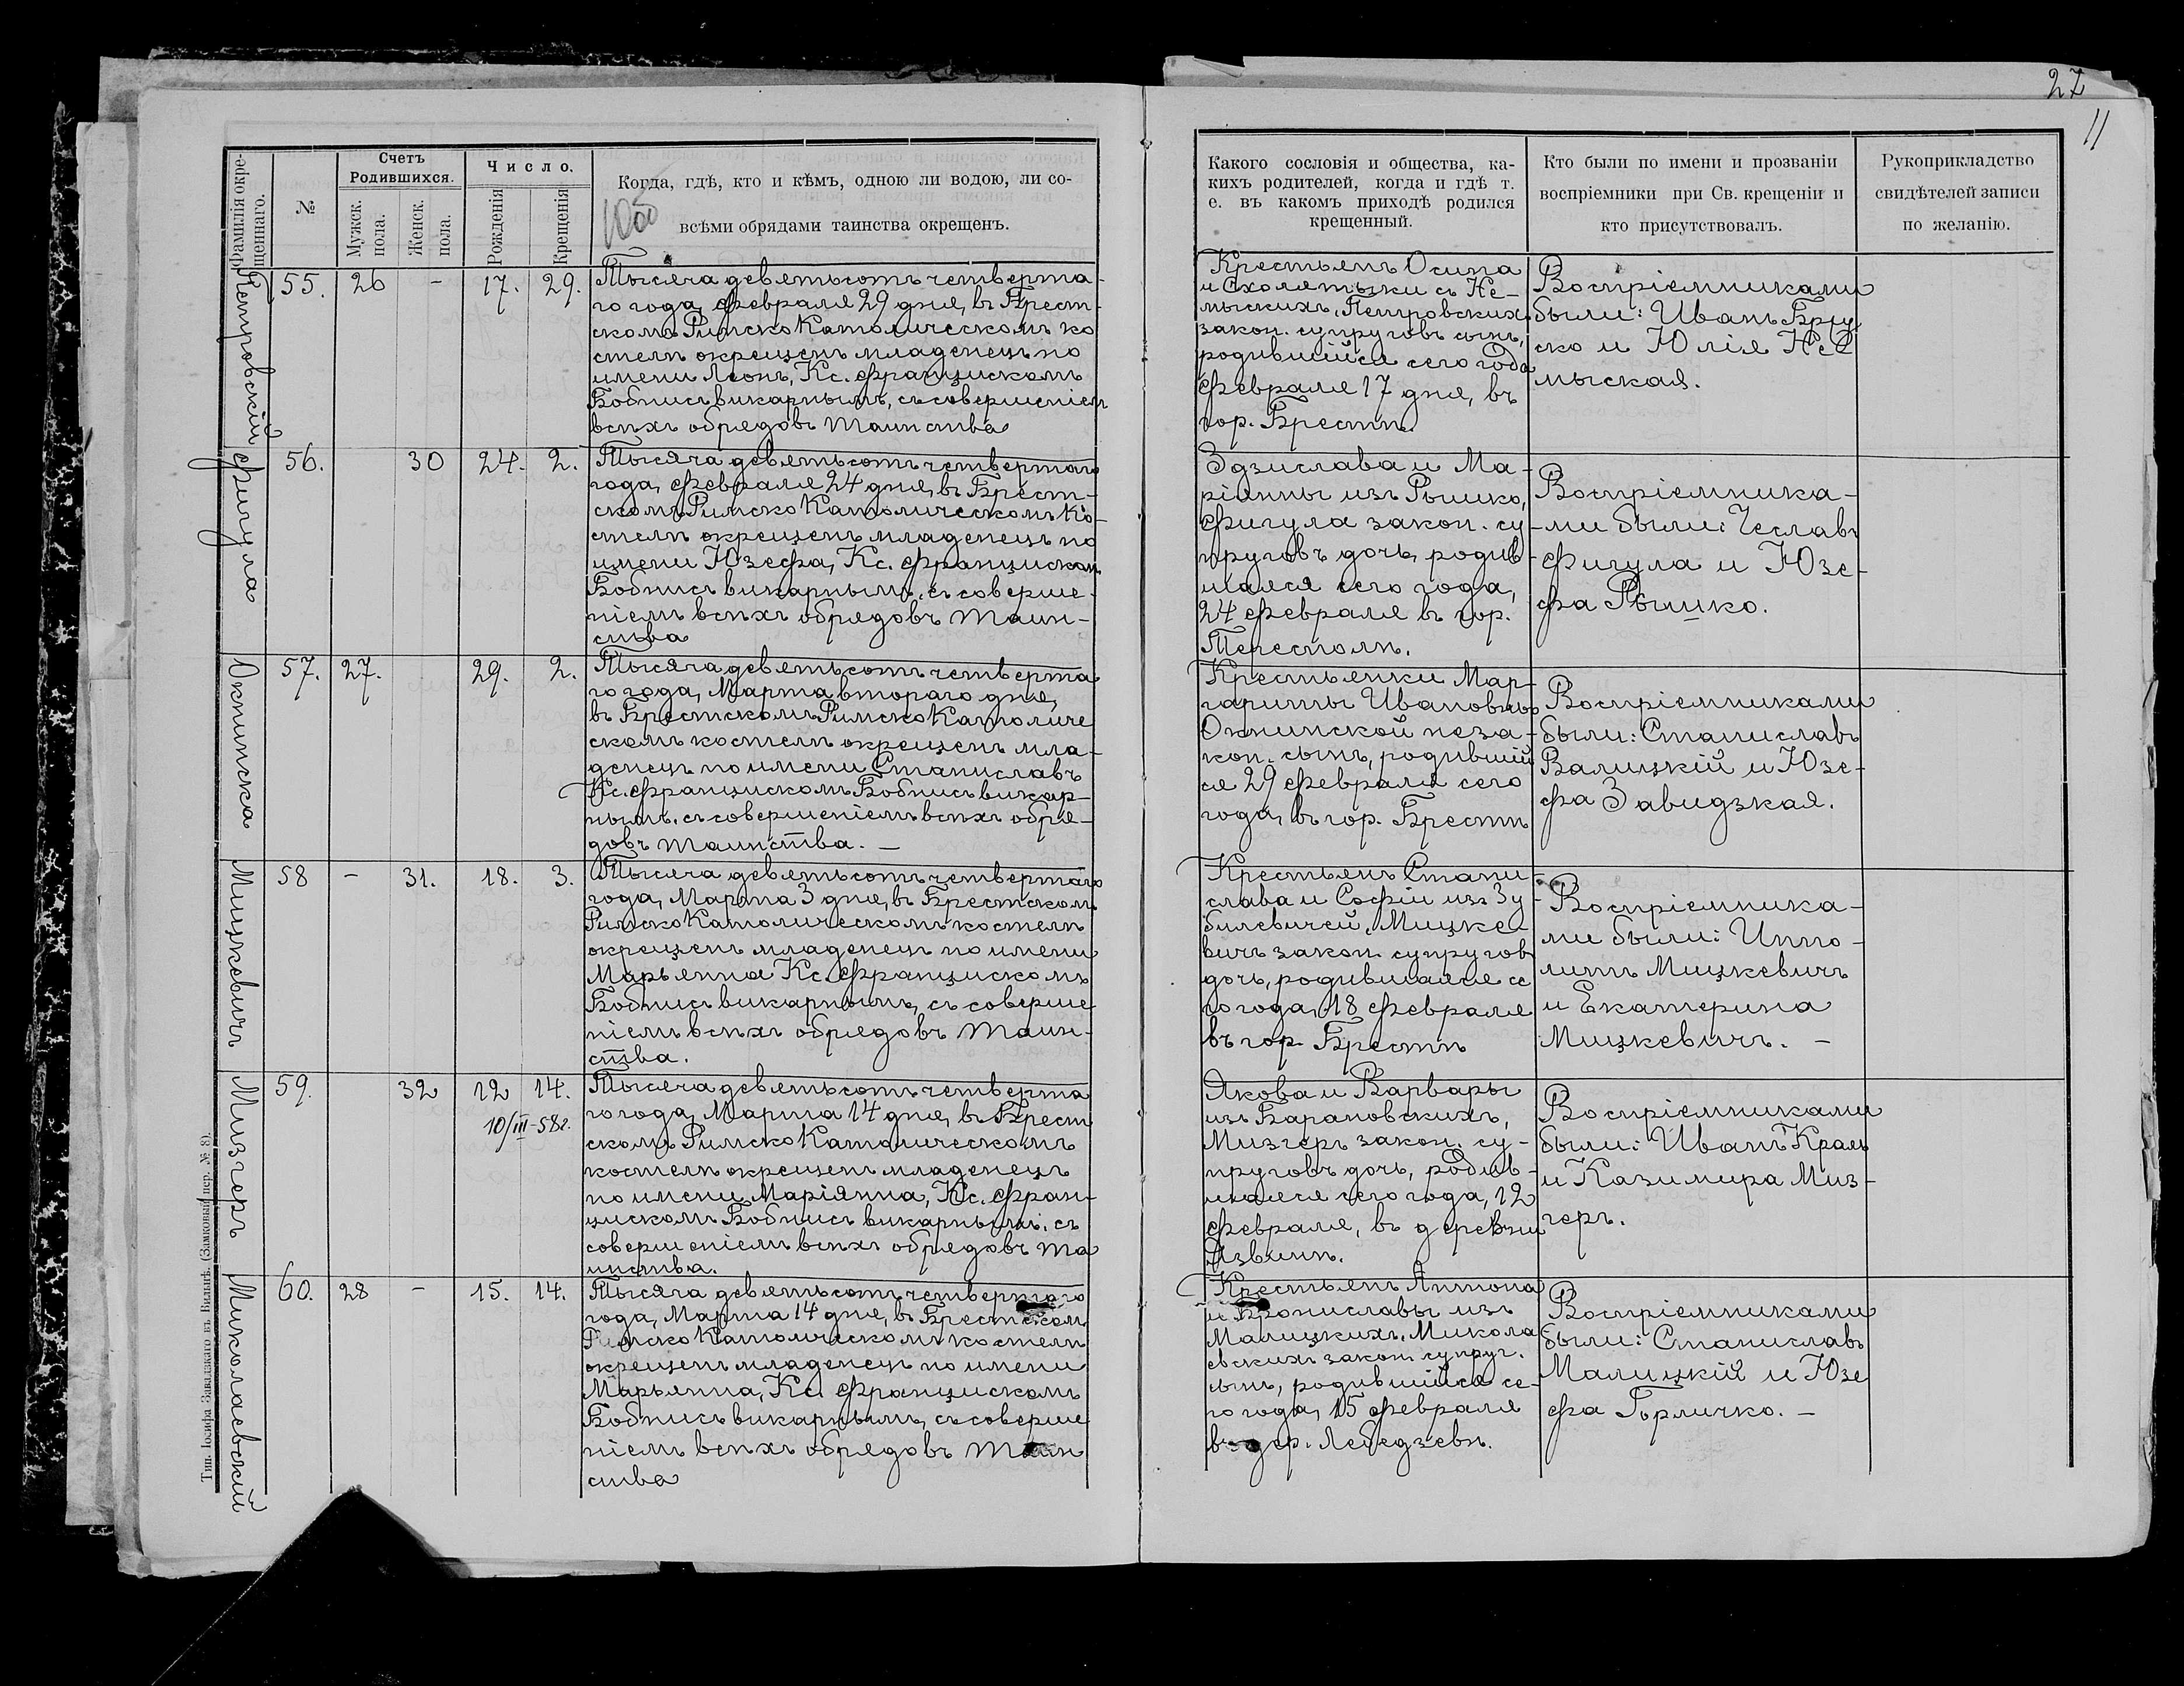 27
11
Фамилія окре-
щеннаго.
№
Счетъ
Родившихся.
Мужск.
пола.
Женск.
пола.
Число.
Рожденія
Крещенія
Когда, гдѣ, кто и кѣмъ, одною ли водою, ли со-
всѣми обрядами таинства окрещенъ.
Какого сословія и общества, ка-
кихъ родителей, когда и гдѣ т.
е. въ какомъ приходѣ родился
крещенный.
Кто были по имени и прозваніи
воспріемники при Св. крещеніи и
кто присутствовалъ.
Рукоприкладство
свидѣтелей записи
по желанію.
Петровскій
55. 26 - 17. 29.
Тысяча девятьсотъ четверта-
го года, Февраля 29 дня, въ Брест-
скомъ Римско Католическомъ ко
стелѣ окрещенъ младенецъ по
имени Леонъ, Кс. Францискомъ
Бобнисъ викарнымъ, съ совершеніемъ
всѣхъ обрядовъ таинства
Крестьянъ Осипа
и Схолятыки съ Не-
мыскихъ, Петровскихъ
закон. супруговъ сынъ,
родившійся сего года
Февраля 17 дня, въ
гор. Брестѣ.
Воспріемниками
были: Иванъ Бру
ско и Юлія Не
мыская.
Фигула
56. 30 24. 2.
Тысяча девятьсотъ четвертаго
года, Февраля 24 дня, въ Брест-
скомъ Римско Католическомъ Ко-
стелѣ окрещенъ младенецъ по
имени Юзефа, Кс. Францискомъ
Бобнисъ викарнымъ, съ соверше-
ніемъ всѣхъ обрядовъ таин-
ства
Здзислава и Ма-
ріянны изъ Рышко,
Фигула закон. су-
пруговъ дочь, родив-
шаяся сего года,
24 Февраля въ гор.
Тересполѣ.
Воспріемника-
ми были: Чеславъ
Фигула и Юзе-
фа Рышко.
Окнинска
57. 27. 29. 2.
Тысяча девятьсотъ четверта
го года, Марта второго дня,
въ Брестскомъ Римско Католиче
скомъ костелѣ окрещенъ мла-
денецъ по имени Станиславъ
Кс. Францискомъ Бобнисъ викар-
нымъ, съ совершеніемъ всѣхъ обря-
довъ таинства. -
Крестьянки Мар-
гариты Ивановны
Окнинской неза-
кон. сынъ, родившій
ся 29 Февраля сего
года, въ гор. Брестѣ
Воспріемниками
были: Станиславъ
Валицкій и Юзе-
фа Завидзкая.
Мицкевичъ
58 - 31. 18. 3.
Тысяча девятьсотъ четвертаго
года, Марта 3 дня, въ Брестскомъ
Римско Католическомъ костелѣ
окрещенъ младенецъ по имени
Марьянна Кс. Францискомъ
Бобнисъ викарнымъ, съ соверше
ніемъ всѣхъ обрядовъ таин-
ства.
Крестьянъ Стани-
слава и Софіи изъ Зу-
билевичей, Мицке-
вичъ закон. супругов
дочь, родившаяся се
го года, 18 Февраля
въ гор. Брестѣ
Воспріемника-
ми были: Иппо-
литъ Мицкевичъ
и Екатерина
Мицкевичъ. -
Мизгеръ
59. 32 12 14.
10/III-58г.
Тысяча девятьсотъ четверта
го года, Марта 14 дня, въ Брест
скомъ Римско Католическомъ
костелѣ окрещенъ младенецъ
по имени Маріянна, Кс. Фран-
цискомъ Бобнисъ викарнымъ, съ
совершеніемъ всѣхъ обрядовъ та
инства.
Якова и Варвары
изъ Барановскихъ,
Мизгеръ закон. су-
пруговъ дочь, родив-
шаяся сего года, 12
Февраля, въ деревни
Язвинѣ.
Воспріемниками
были: Иванъ Краль
и Казимира Миз-
геръ.
Миколаевский
60. 28 - 15. 14.
Тысяча девятьсотъ четвертаго
года, Марта 14 дня, въ Брестском
Римско Католическомъ костелѣ
окрещенъ младенецъ по имени
Марьянна, Кс. Францискомъ
Бобнисъ викарнымъ, съ соверше
ніемъ всѣхъ обрядовъ таин
ства
Крестьянъ Антона
и Брониславы изъ
Малицкихъ, Микола
евскихъ закон. супруг.
сынъ, родившійся се-
го года, 15 Февраля
въ дер. Лебедзевѣ.
Воспріемниками
были: Станиславъ
Малицкій и Юзе
фа Горличко. -
Тип. Іосифа Завадзкаго въ Вильнѣ. (Замковый пер. № 8).